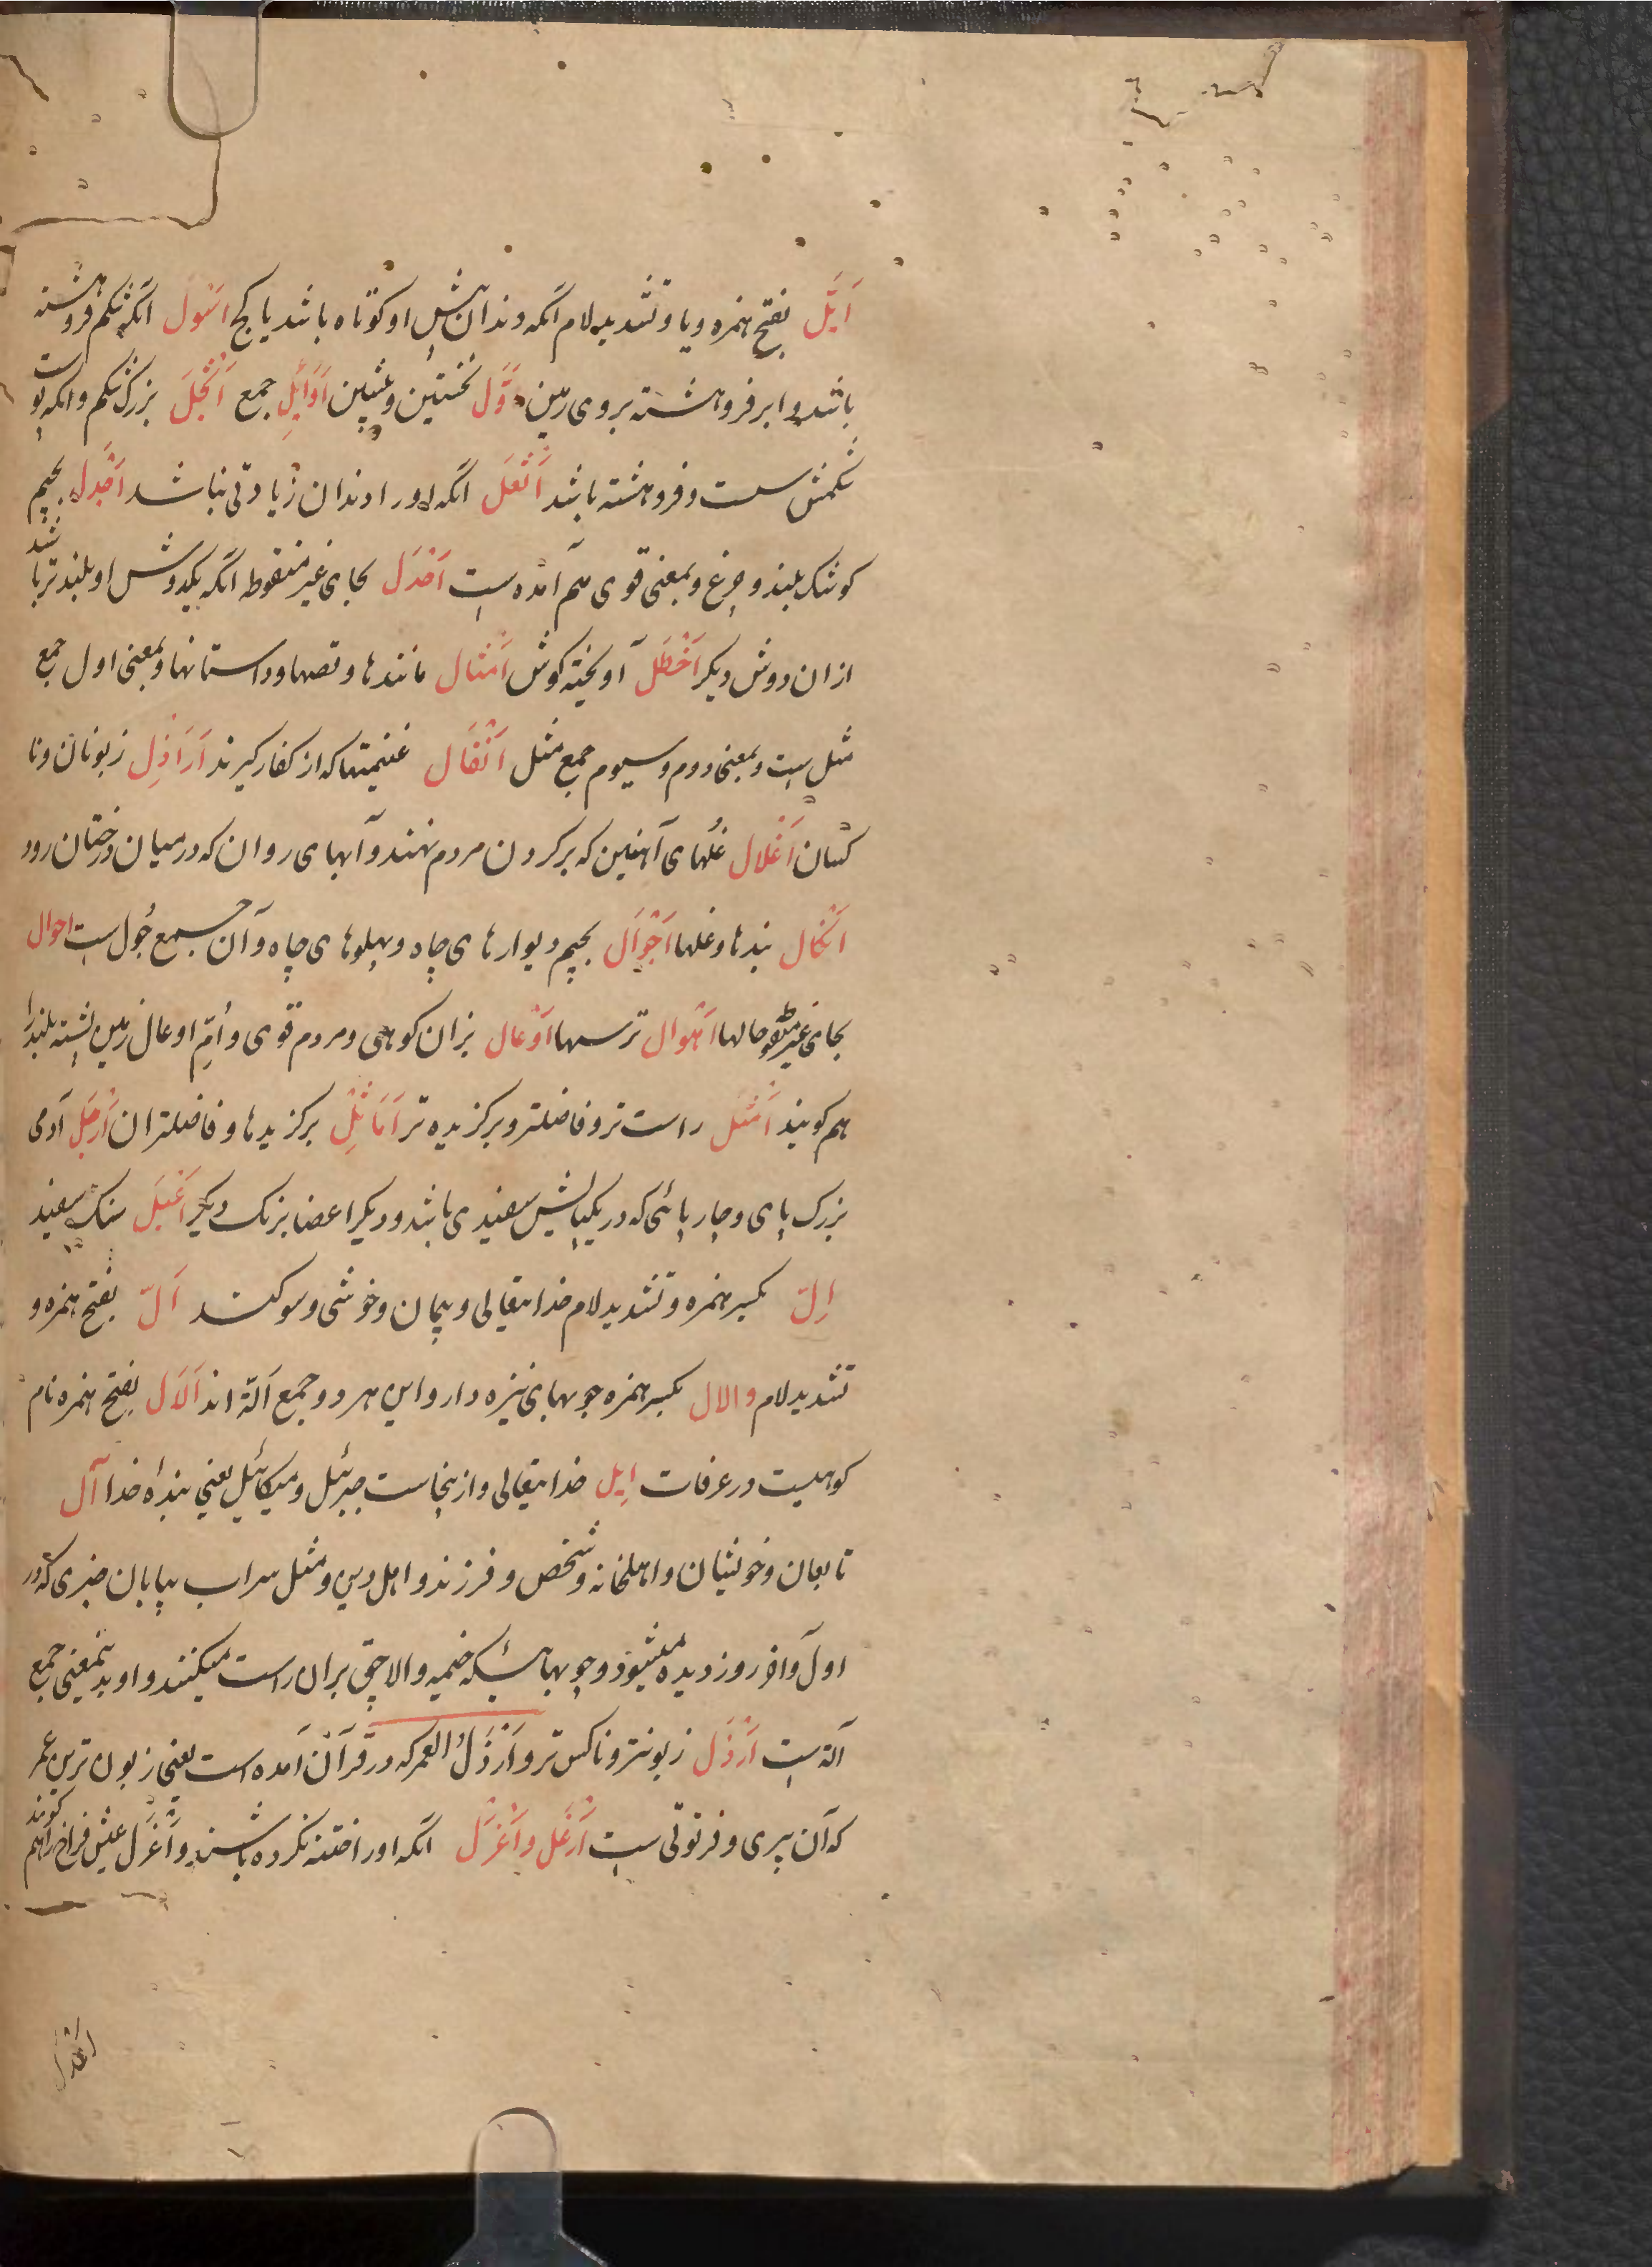 اَیَلّ بفتح همزه و یا و تشدید لام انکه دندان پیش او کوتاه باشد یا کج اَسْوَل انکه شکم فروهشته
باشد و ابر فروهشته بروی زمین اَوَّل نخستین و پیشین اَوَایِل جمع اَثْجَل بزرک شکم و انکه پوست
شکمش سست و فروهشته باشد اَثْعَل انکه او را دندان زیادتی باشد اَجْدَل بجیم
کوشک بلند و چرغ و بمعنی قوی هم آمده است اَحْدَل بحای غیر منقوطه انکه یکدوش او بلند تر باشد
از ان دوش دیکر اَخْطَل آویخته کوش اَمْثال مانندها و قصها و داستانها و بمعنی اول جمع
مثل ست و بمعنی دوم و سیوم جمع مثل اَنْفَال غنیمتها که از کفار کیرند اَرَاذِل زبونان و نا
کسان اَغْلال غُلهای آهنین که بر کردن مردم نهند و آبهای روان که در میان درختان رود
اَنْکال بندها و غلها اَجْوَال بجیم دیوارهای چاه و پهلوهای چاه و آن جمع جُول ست احوال
بحای غیر منقوطه حالها اَهْوال ترسها اَوْعال بزان کوهی و مردم قوی و اُمّ اوعال زمین پشته بلند را
هم کویند اَمْثَل راست تر و فاضلتر و برکزیده تر اَمَاثِل برکزیدها و فاضلتران اَرْجَل آدمی
بزرک پای و چارپائی که در یکپایش سفیدی باشد و دیکر اعضا برنک دیکر اَعْبَل سنک سفید
اِلّ بکسر همزه و تشدید لام خدایتعالی و پیمان و خوشی و سوکند اَلّ بفتح همزه و
تشدید لام والال بکسر همزه چوبهای نیزه دار و این هر دو جمع اَلّة اند اَلَال بفتح همزه نام
کوهیست در عرفات اِیل خدایتعالی و ازینجاست جبرئیل و میکائیل یعنی بندهٔ خدا آل
تابعان و خویشان و اهلخانه و شخص و فرزند و اهل دین و مثل سراب بیابان چیزی که در
اول و اخر روز دیده میشود و چوبهائیکه خیمه و الاچق بران راست میکنند و او بدینمعنی جمع
آلة ست اَرْذَل زبونتر و ناکس تر و اَرْذَلُ العمر که در قرآن آمده است یعنی زبون ترین عمر
که آن پیری و فرتوتی ست اَرْغَل و اَغْرَل انکه او را ختنه نکرده باشند و اَغْرَل عیش فراخ را هم کویند